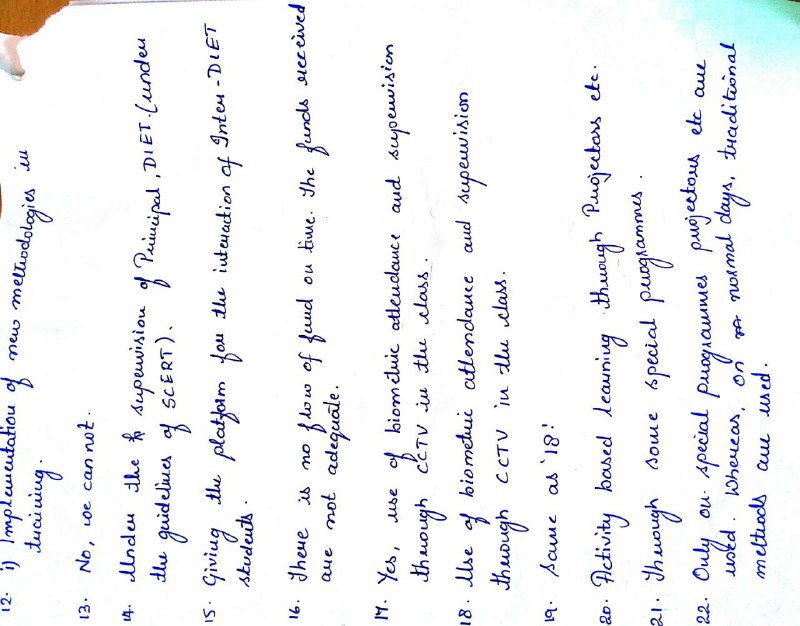 12. i) Implementation of new methodologies in
training.
13. No, we can not.
14. Under the supervision of Principal, DIET. (under
the guidelines of SCERT).
15. Giving the platform for the interaction of Inter-DIET
students.
16. There is no flow of fund on time. The funds received
are not adequate.
17. Yes, use of biometric attendance and supervision
through CCTV in the class.
18. Use of biometric attendance and supervision
through CCTV in the class.
19. Same as '18'.
20. Activity based learning through Projectors etc.
21. Through some special programmes.
22. Only on special programmes projectors etc are
used. Whereas, on normal days, traditional
methods are used.